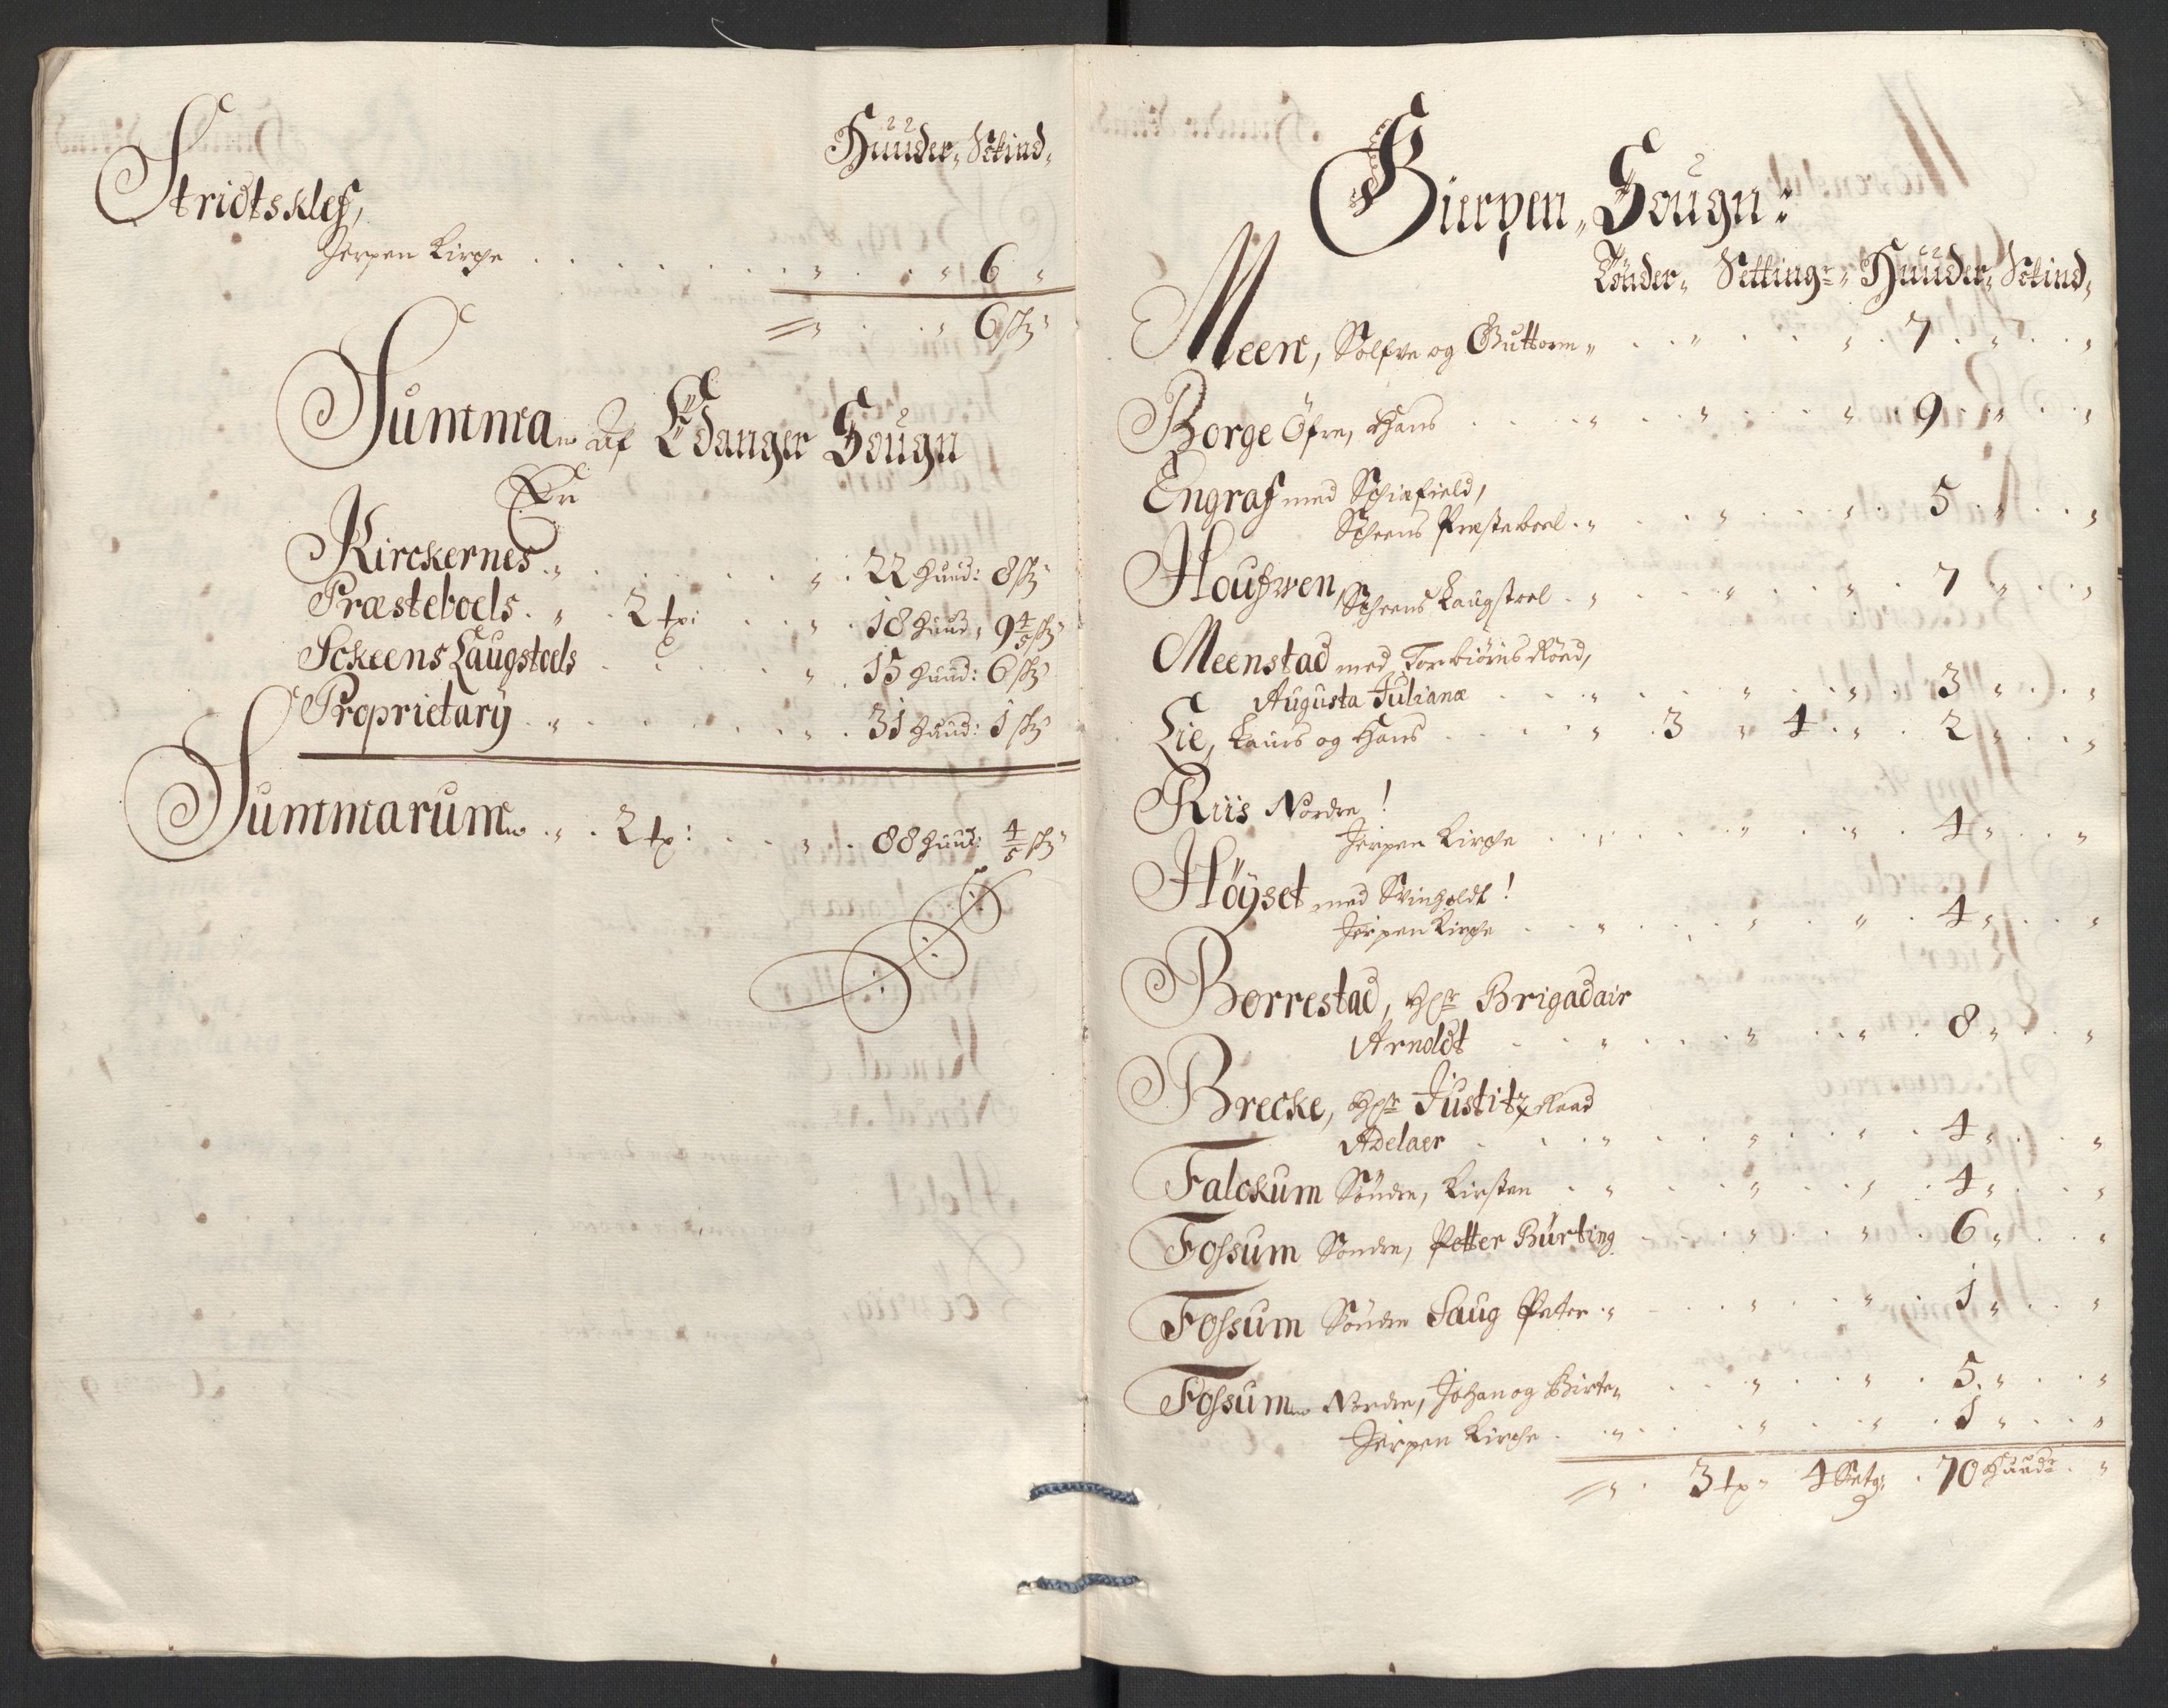 Huuder, Skind,
Stridtsklef,
Jerpen Kirche . . . . . . . . " . . " 6 "
" . . " 6 sk:
Summa af Edanger Sougn
Er
Kirckernes . " . . . . . " . 22 Huud: 8 sk:
Præsteboels . " . 2 tp: . . " . 18 Huud, 9 4/5 sk:
Sckeens Laugstoels . . . . " . 15 Huud: 6 sk:
Proprietary . " . . . . . " . 31 Huud: 1 sk:
Summarum . " . 2 tp: . . " . 88 Huud: 4/5 sk:
Gierpen, Sougn:
Tönder, Setting:, Huuder, Skind,
Meen, Solfve og Guttorm " . . " . . " . 7 . " . . "
Borge Öfre, Hans . . . " . . " . . " . 9 . " . . "
Engraf med Schiefield,
Scheens Præsteboel . " . . " . . " . 5 . " . . "
Houfwen, Scheens Laugstoel . " . . " . . " . 7 " . . "
Meenstad med Torbiörns Röed,
Augusta Juliana . . . " . . " . . " . 3 " . . "
Lie, Laurs og Hans . . . . " . 3 " 4 . " . 2 " . . "
Riis Nordre!
Jerpen Kirche . . " . . . " . . " . 4 " . . "
Höyset med Svinholdt!
Jerpen Kirche . . " . . . " . . " . 4 " . . "
Borrestad, Hr Brigadair
Arnoldt . . " . . . " . . " . 8 " . . "
Brecke, Hr Justitz Raad
Adelaer . . . " . . . " . . " . 4 " . . "
Falckum Söndre, Kirsten . " . . " . . " . 4 " . . "
Fossum Söndre, Petter Bürting . . . " . . " . 6 " . . "
Fossum Söndre Saug Peter . " . . . " . . " . 1 " . . "
Fossum Nordre, Johan og Birte " . . . " . . " . 5 . " . . "
Jerpen Kirche . . " . . . " . . " . 1 " . . "
" . 3 tp " 4 Setg: . 70 Huude . "